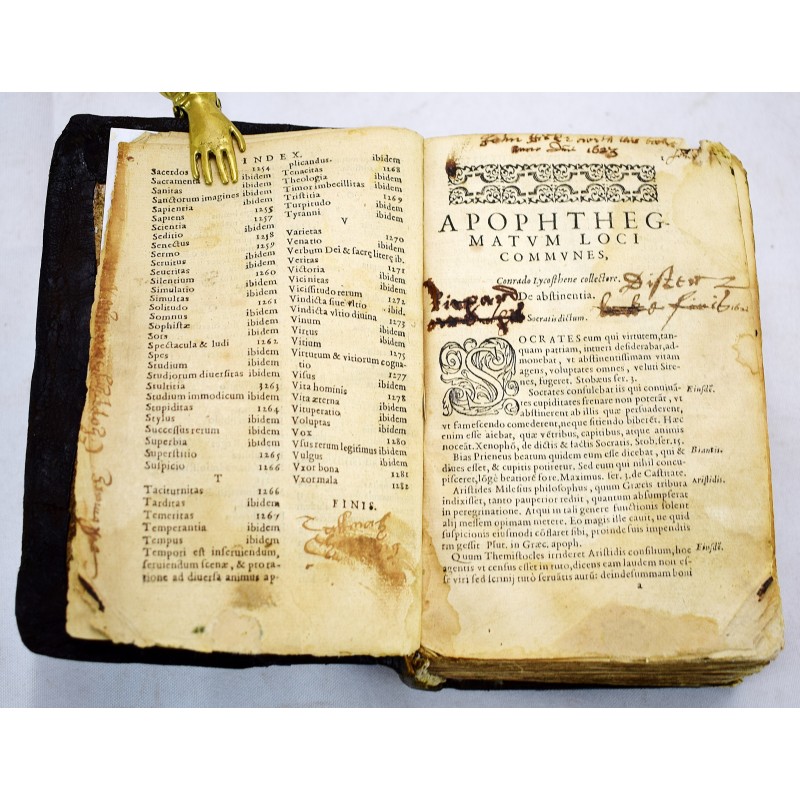 INDEX.
Sacerdos 1254
Sacramenta ibidem
Sanitas ibidem
Sanctorum imagines ibidem
Sapientia 1255
Sapiens 1257
Scientia ibidem
Seditio 1258
Senectus 1259
Sermo ibidem
Seruitus ibidem
Seueritas 1260
Silencium ibidem
Simulatio ibidem
Simultas 1261
Solitudo ibidem
Somnus ibidem
Sophistæ ibidem
Sors ibidem
Spectacula & ludi 1262
Spes ibidem
Studium ibidem
Studiorum diuersitas ibidem
Stultitia 3263
Studium immodicum ibidem
Stupiditas 1264
Stylus ibidem
Successus rerum ibidem
Superbia ibidem
Superstitio 1265
Suspicio 1266
T
Taciturnitas 1266
Tarditas ibidem
Temeritas 1267
Temperantia ibidem
Tempus ibidem
Tempori est inseruiendum,
seruiendum scenæ, & pro ra-
tione ad diuersa animus ap-
plicandus. ibidem
Tenacitas 1268
Theologia ibidem
Timor imbecillitas ibidem
Tristitia 1269
Turpitudo ibidem
Tyranni ibidem
V
Varietas 1270
Venatio ibidem
Verbum Dei & sacræ literę ib.
Veritas 1271
Victoria ibidem
Vicinitas ibidem
Vicissitudo rerum 1272
Vindicta siue vltio ibid.
Vindicta vltio diuina 1273
Vinum ibidem
Virtus ibidem
Vitium ibidem
Virtutum & vitiorum cogna-
tio 1275
Visus 1277
Vita hominis ibidem
Vita æterna 1278
Vituperatio ibidem
Voluptas ibidem
Vox ibidem
Vsus rerum legitimus ibidem
Vulgus ibidem
Vxor bona 1281
Vxor mala 1282
FINIS.
anno 1623
APOPHTHEG-
MATVM LOCI
COMMVNES,
Conrado Lycosthene collectore.
De abstinentia.
Socratis dictum.
SOCRATES eum qui virtutem, tan-
quam patriam, intueri desiderabat, ad-
monebat, vt abstinentissimam vitam
agens, voluptates omnes, veluti Sire-
nes, fugeret. Stobæus ser. 3.
Socrates consulebat iis qui conuiuâ- Eiusdē.
tes cupiditates frenare non poterāt, vt
abstinerent ab illis quæ persuaderent,
vt famescendo comederent, neque sitiendo biberēt. Hæc
enim esse aiebat, quæ vētribus, capitibus, atque animis
noceāt. Xenopho, de dictis & factis Socratis. Stob. ser. 15.
Bias Prieneus beatum quidem eum esse dicebat, qui & Biantis.
diues esset, & cupitis potiretur. Sed eum qui nihil concu-
pisceret, lōgè beatiorē fore. Maximus. ser. 3. de Castitate
Aristides Milesius philosophus, quum Græcis tributa Aristidis.
indixisset, tanto pauperior rediit, quantum absumpserat
in peregrinatione. Atqui in tali genere functionis solent
alij messem opimam metere. Eo magis ille cauit, ne quid
suspicionis eiusmodi cōstaret sibi, proinde suis impendiis
rem gessit Plut. in Græc. apoph.
Quum Themistocles irrideret Aristidis consilium, hoc Eiusdē.
agentis vt census esset in tuto, dicens eam laudem non es-
se viri sed scrinij tutò seruātis aurū: deinde summam boni
a